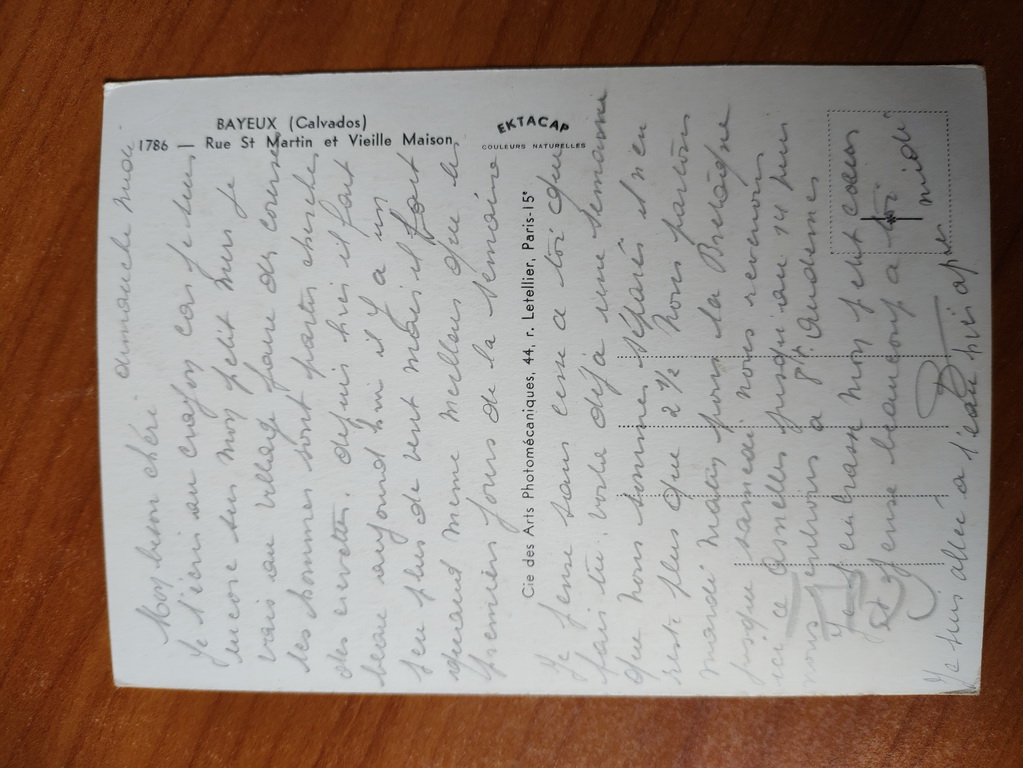 BAYEUX (Calvados)
1786 — Rue St Martin et Vieille Maison
EKTACAP
COULEURS NATURELLES
Cie des Arts Photomécaniques, 44, r. Letellier, Paris-15e
dimanche midi
Mon bien chéri
Je t'écris au crayon car je suis
encore sur mon petit murs je
vais au village faire des courses
les hommes sont partis cherche
des crevettes. depuis hier il fait
beau aujourd hui il y a un
peu plus de vent mais il fait
quand meme meilleur que les
premiers jours de la semaine
Je pense sans cesse a toi que
fais tu. voila déja une semaine
que nous sommes séparé il n'en
reste plus que 2 1/2 Nous partons
mardi matin pour la Bretagne
jusque samedi nous revenons
ici a Asnelles jusqu'au 14 puis
nous rentrons a
Je t'embrasse mon petit coeur
et pense beaucoup a toi
Je suis allée a l'eau hier apres midi